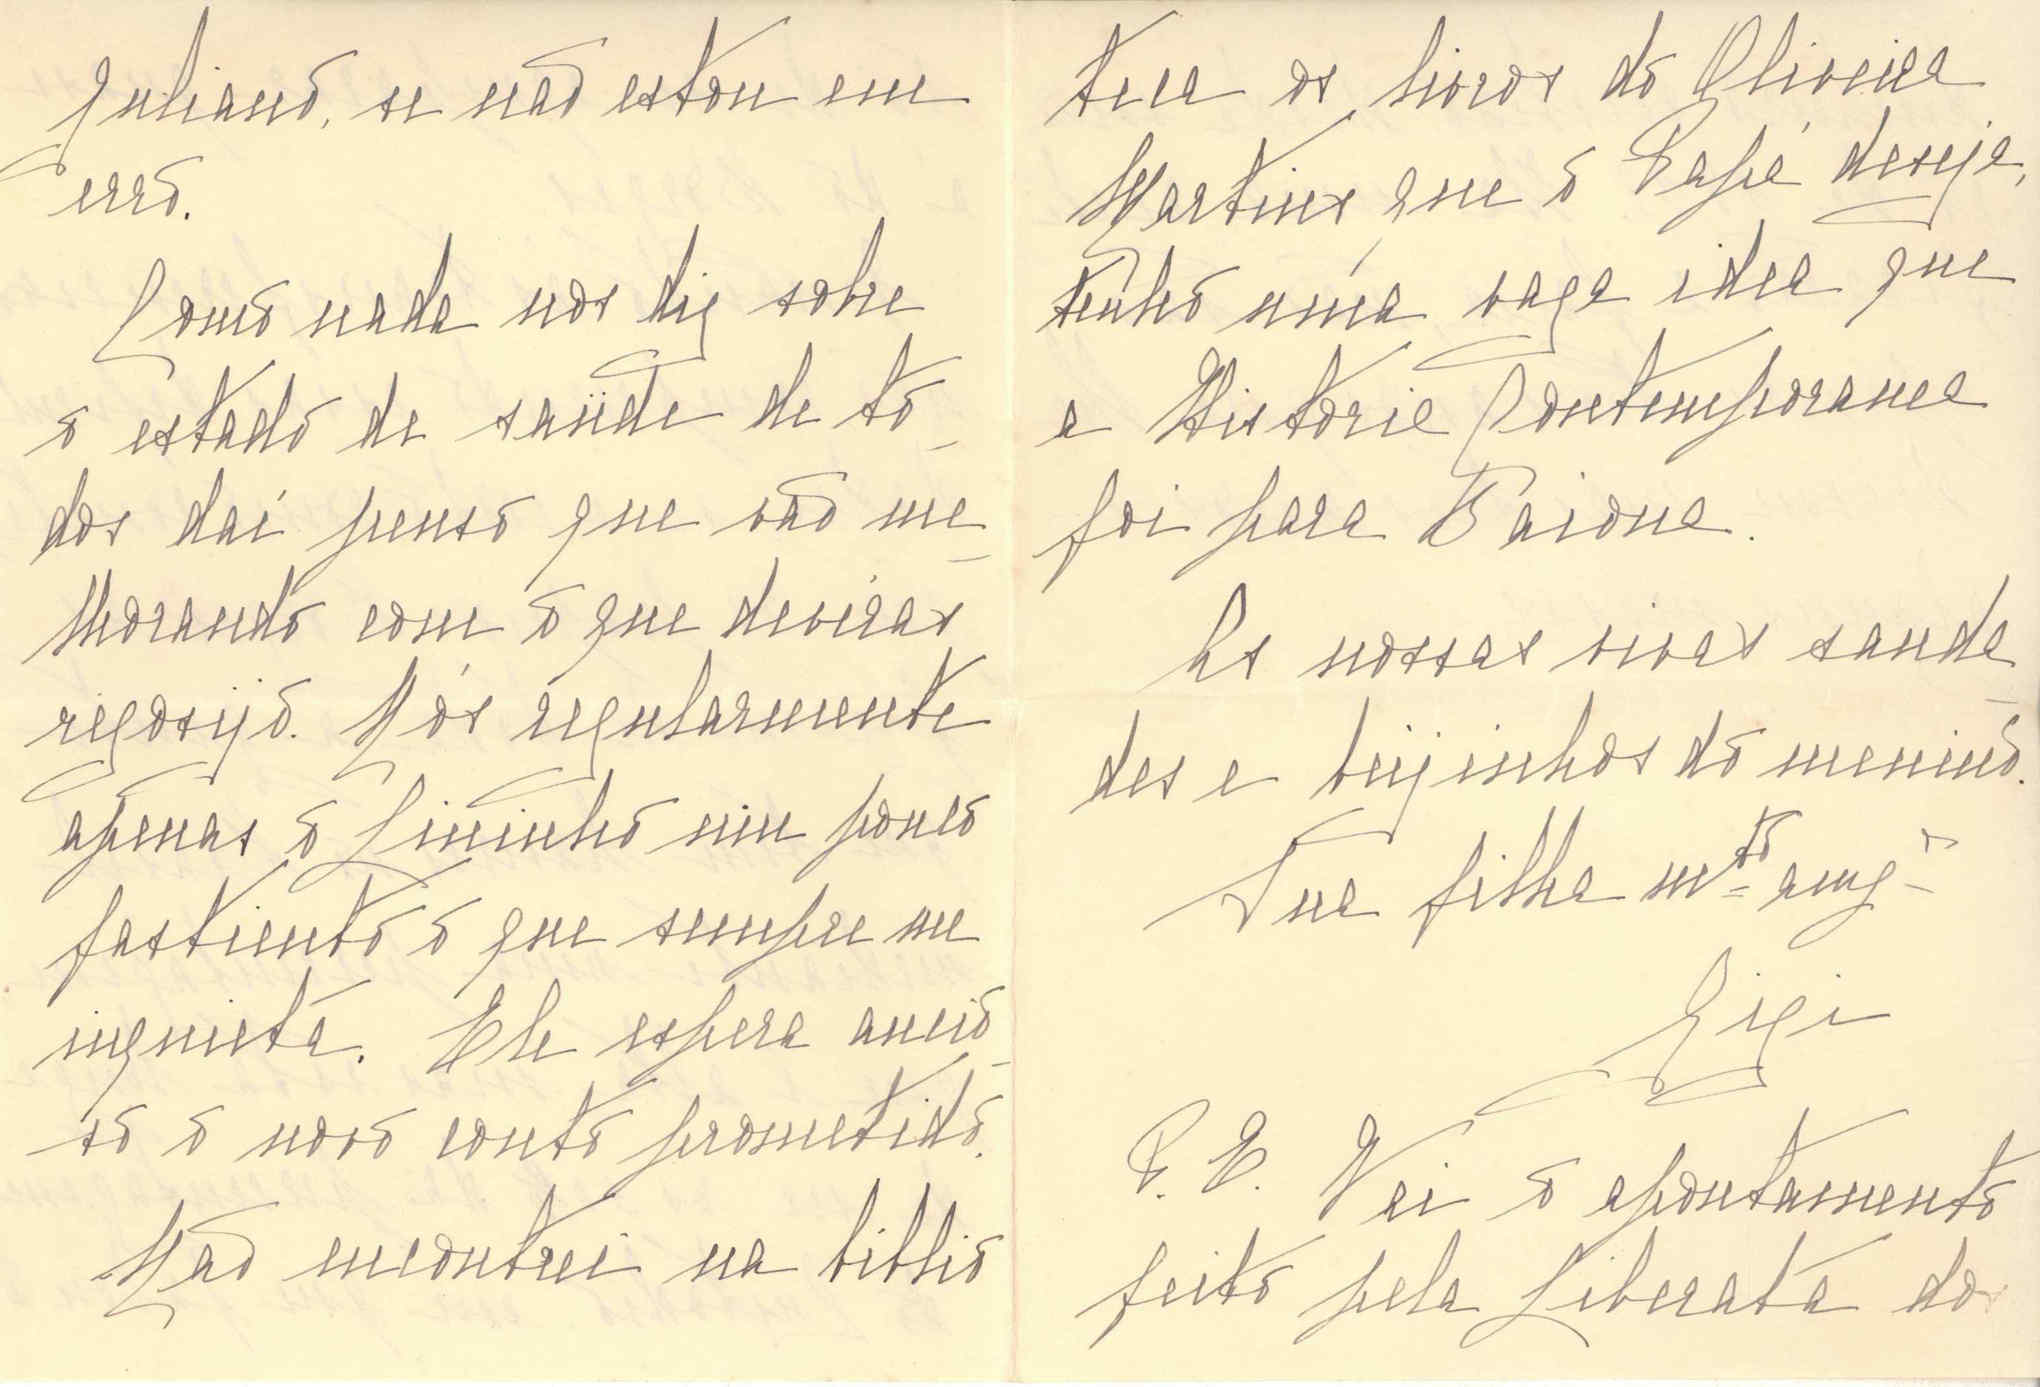 Juliano, se não estou em
erro.
Como nada nos diz sobre
o estado de saüde de to-
dos daí penso que vão me-
lhorando com o que devéras
regosijo. Nós regularmente
apenas o Lininho um pouco
fastiento o que sempre me
inquieta. Ele espera ancio-
so o novo conto prometido.
Não encontrei na biblio
teca os livros do Oliveira
Martins que o Papá deseja,
tenho uma vaga idea que
a Historia Contemporanea
foi para Baiona.
As nossas vivas sauda-
des e beijinhos do menino.
Tua filha mto amga
Gigi
P. E. Vai o apontamento
feito pela Liberata do